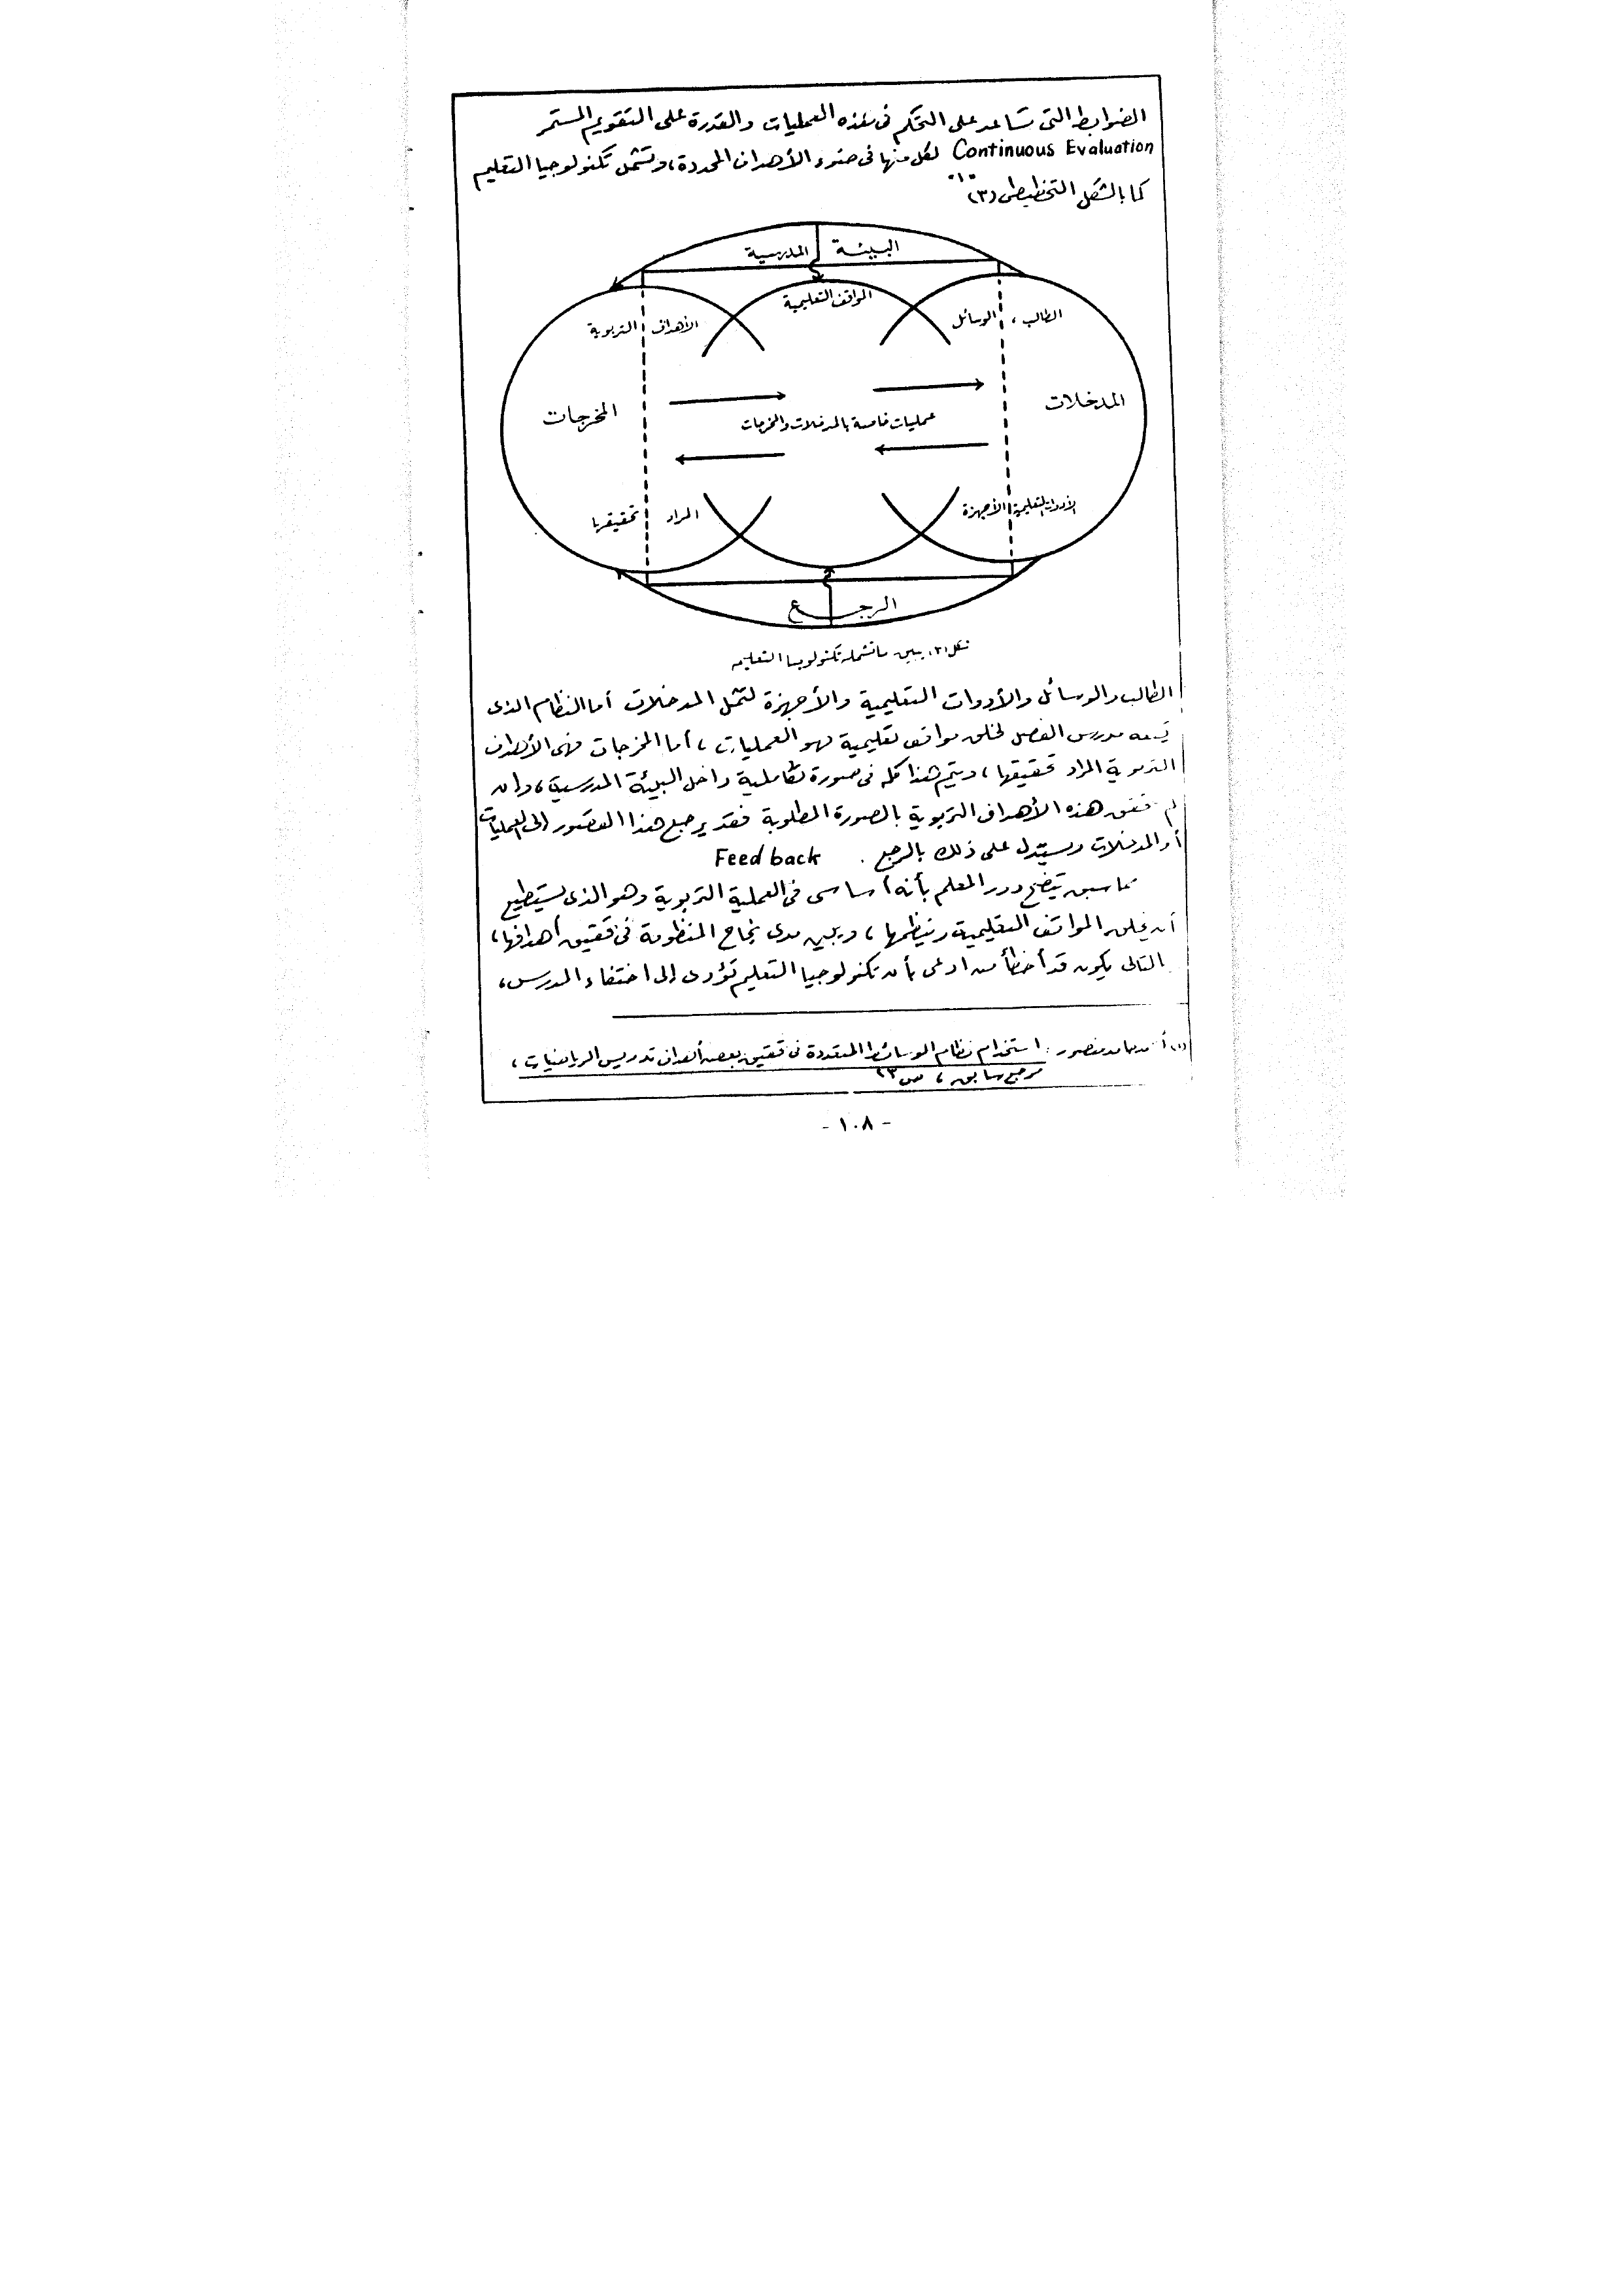 الضوابط التى تساعد على التحكم فى هذه العمليات والقدرة على التقويم المستمر
Continuous Evaluation لكل منها فى ضوء الأهداف المحددة، وتشمل تكنولوجيا التعليم
كما بالشكل التخطيطى (٣)"١"
البيئة المدرسية
المواقف التعليمية
الطالب ، الوسائل
الأهداف التربوية
المدخلات
المخرجات
عمليات خاصة بالمدخلات والمخرجات
الأدوات التعليمية الأجهزة
المراد تحقيقها
الرجــع
شكل (٣) يبين ماتشمله تكنولوجيا التعليم
الطالب والوسائل والأدوات التعليمية والأجهزة لتمثل المدخلات أما النظام الذى
يتبعه مدرس الفصل لخلق مواقف تعليمية فهو العمليات ، أما المخرجات فهى الأهداف
التربوية المراد تحقيقها ، ويتم هذا كله فى صورة تكاملية داخل البيئة المدرسية ، وإن
لم تتحقق هذه الأهداف التربوية بالصورة المطلوبة فقد يرجع هذا القصور إلى العمليات
أو المدخلات ويستدل على ذلك بالرجع . Feed back
مما سبق يتضح دور المعلم بأنه أساسى فى العملية التربوية وهو الذى يستطيع
أن يخلق المواقف التعليمية وينظمها ، ويبين مدى نجاح المنظومة فى تحقيق أهدافها ،
التالى يكون قد أخطأ من ادعى بأن تكنولوجيا التعليم تؤدى إلى اختفاء المدرس ،
(١) أحمد حامد منصور : استخدام نظام الوسائط المتعددة فى تحقيق بعض أهداف تدريس الرياضيات ،
مرجع سابق ، ص ٢٣
- ١٠٨ -